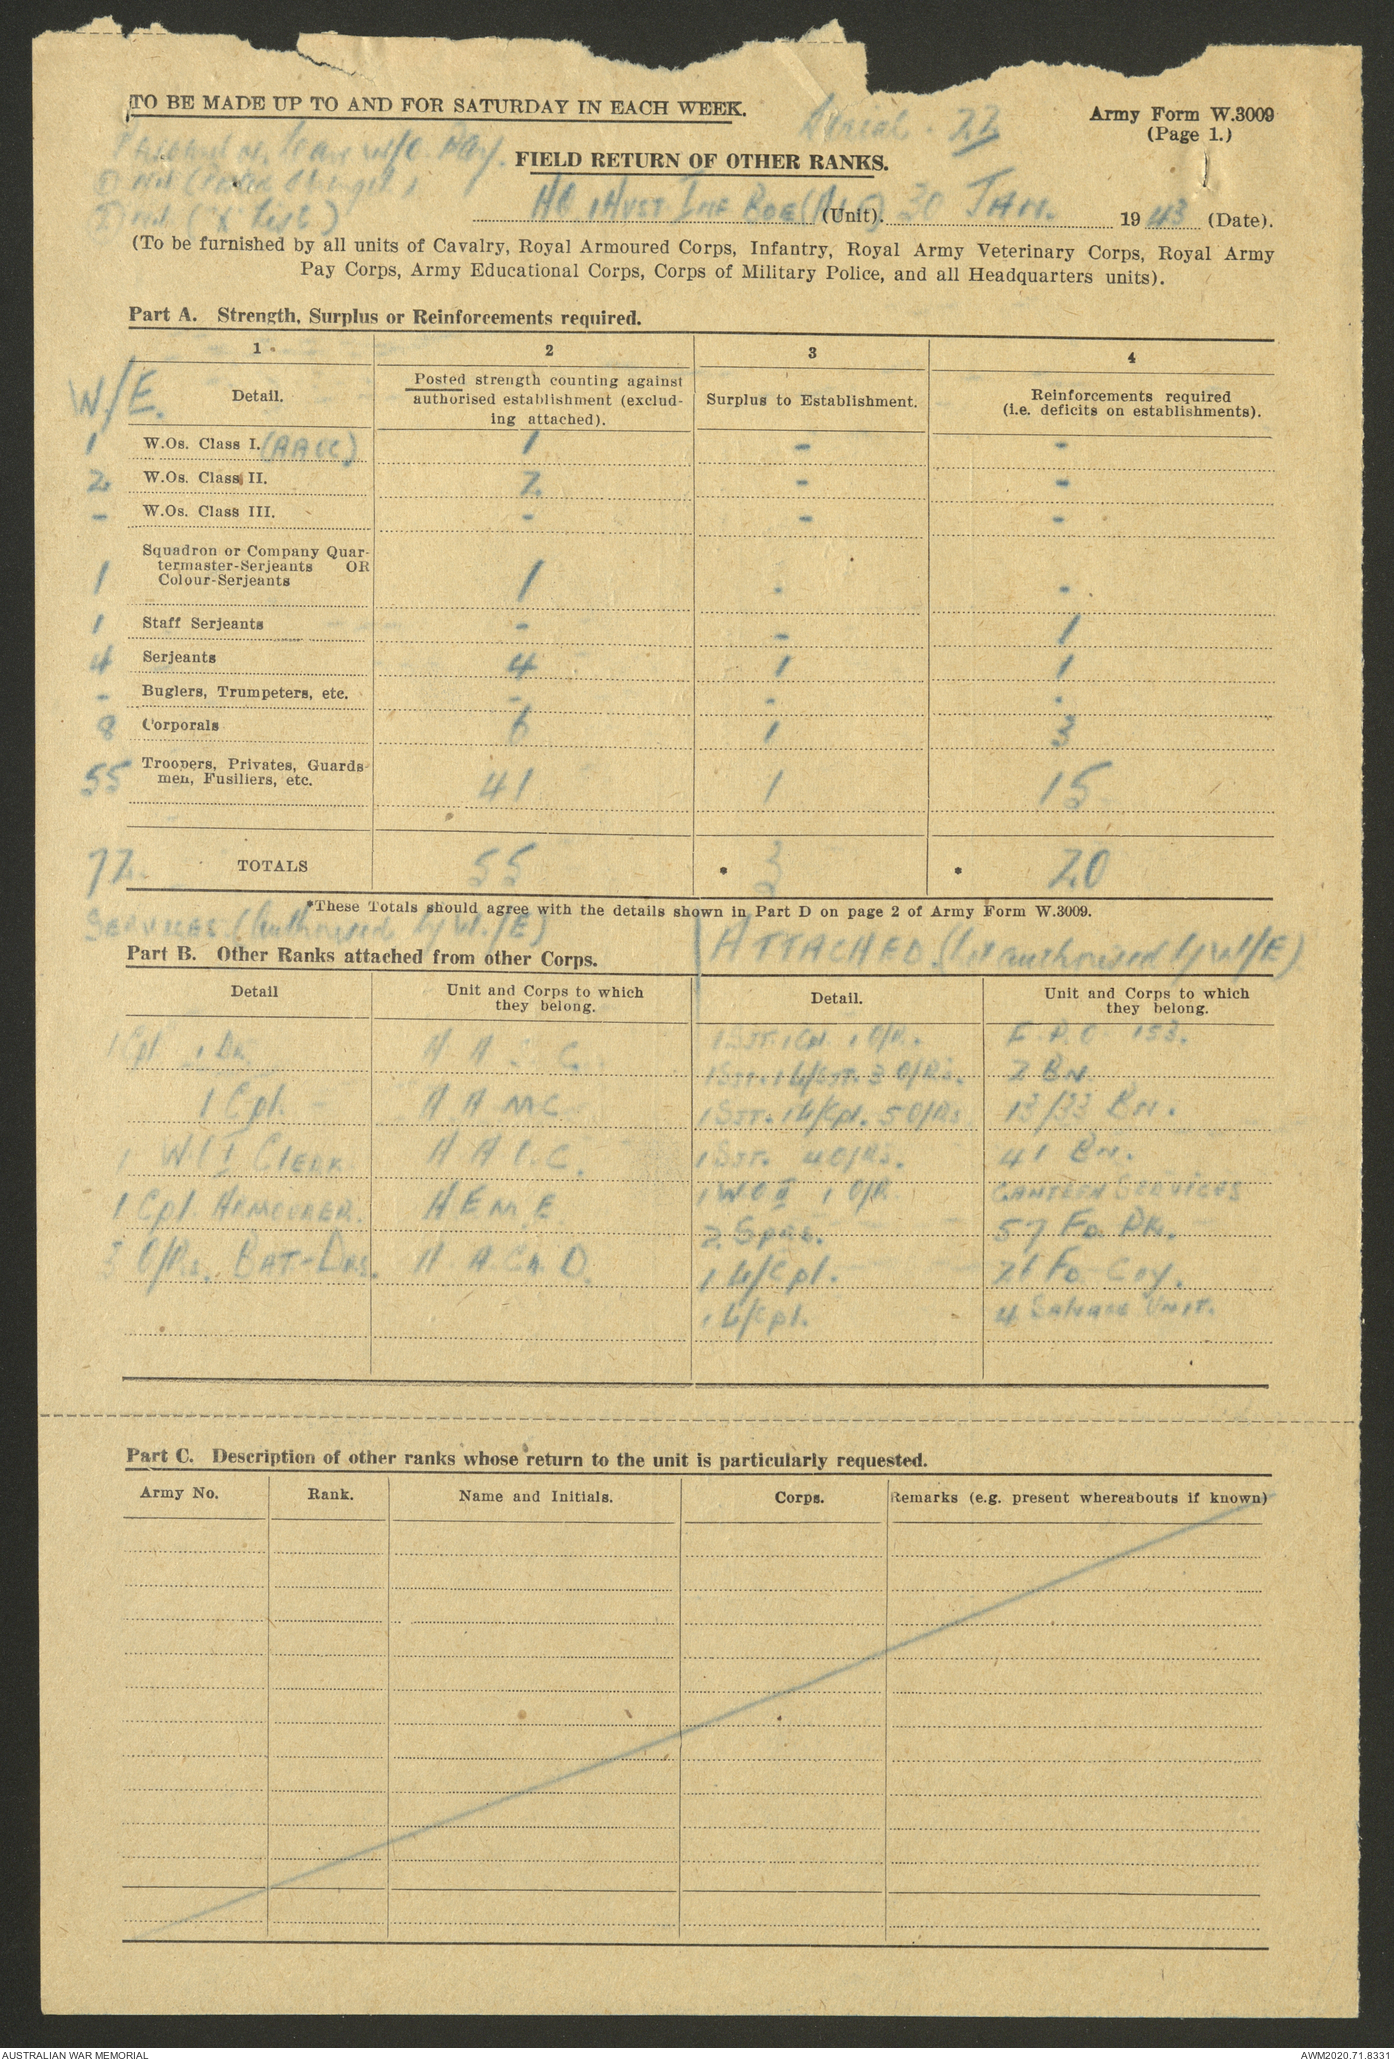 TO BE MADE UP TO AND FOR SATURDAY IN EACH WEEK.
Serial. 23
Army Form W.3009
(Page 1.)
Personnel on leave w/o Pay.
FIELD RETURN OF OTHER RANKS.
① Nil (Posted Strength)
② Nil ("X" List)
HQ 1 AUST INF BDE (AIF) (Unit). 30 JAN. 1943 (Date).
(To be furnished by all units of Cavalry, Royal Armoured Corps, Infantry, Royal Army Veterinary Corps, Royal Army
Pay Corps, Army Educational Corps, Corps of Military Police, and all Headquarters units).
Part A. Strength, Surplus or Reinforcements required.
1 2 3 4
W/E.
Detail.
Posted strength counting against
authorised establishment (exclud-
ing attached).
Surplus to Establishment.
Reinforcements required
(i.e. deficits on establishments).
1 W.Os. Class I. (AACC) 1 - -
2 W.Os. Class II. 2 - -
- W.Os. Class III. - - -
Squadron or Company Quar-
termaster-Serjeants OR
1 Colour-Serjeants 1 - -
1 Staff Serjeants - - 1
4 Serjeants 4 1 1
- Buglers, Trumpeters, etc. - - -
8 Corporals 6 1 3
55 Troopers, Privates, Guards-
men, Fusiliers, etc. 41 1 15
72. TOTALS 55 * 3 * 20
*These Totals should agree with the details shown in Part D on page 2 of Army Form W.3009.
SERVICES (Authorised by W/E)
ATTACHED (Not authorised by W/E)
Part B. Other Ranks attached from other Corps.
Detail
Unit and Corps to which
they belong.
Detail.
Unit and Corps to which
they belong.
1 Cpl 1 Dr. A A C. 1 SJT. 1 Cpl 1 O/R. F P O 153.
1 SJT. 1 L/SJT. 3 O/Rs. 2 BN.
1 Cpl. - A A M C 1 SJT. 1 L/Cpl. 5 O/Rs 13/33 BN.
1 W O I CLERK A A C C. 1 SJT. 4 O/Rs. 41 BN.
1 WO II 1 O/R. CANTEEN SERVICES
1 Cpl. ARMOURER. A E M E 2 Sprs. 57 FD. PK.
3 O/Rs. BAT-DRS. A A Ch D. 1 L/Cpl. 26 FD COY.
1 L/Cpl. 4 SALVAGE UNIT.
Part C. Description of other ranks whose return to the unit is particularly requested.
Army No. Rank. Name and Initials. Corps. Remarks (e.g. present whereabouts if known)
AUSTRALIAN WAR MEMORIAL
AWM2020.71.8331